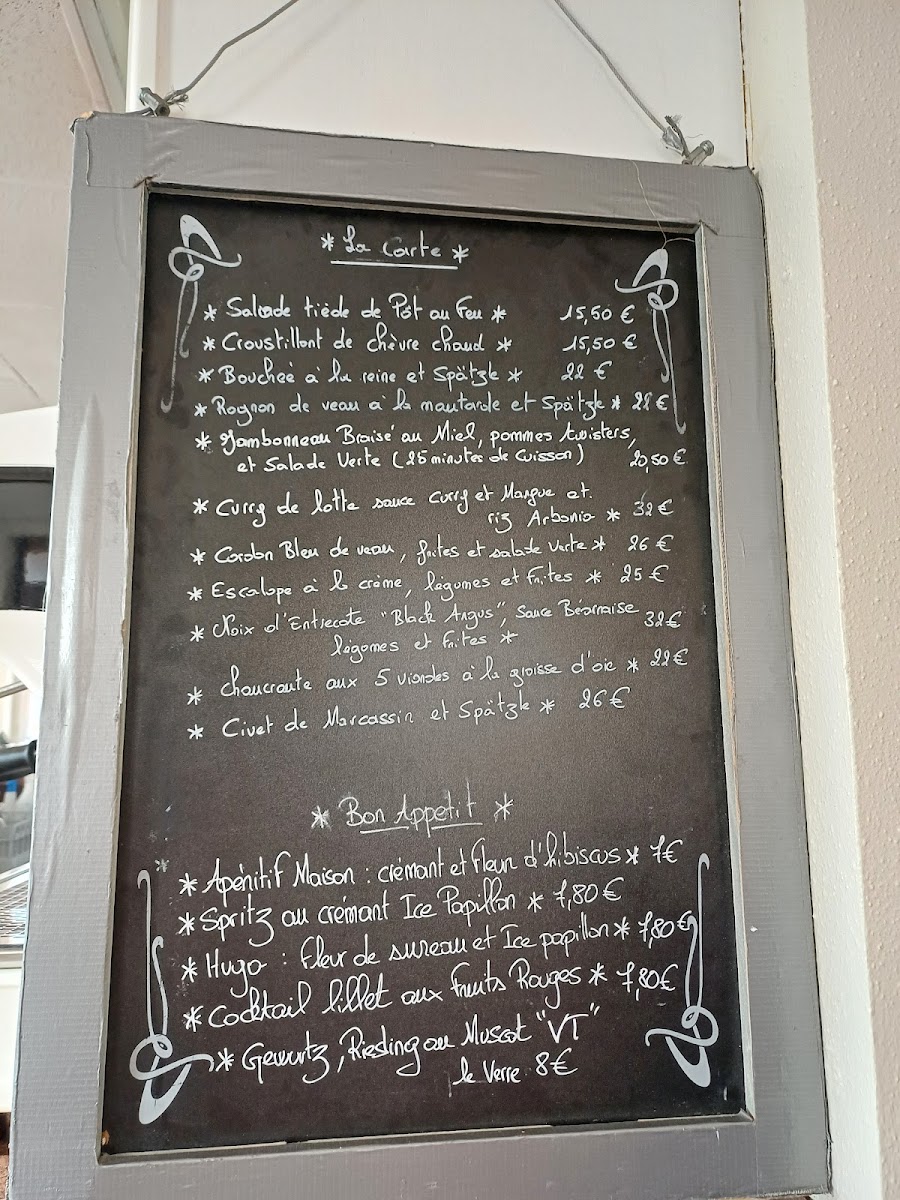 * La Carte *
* Salade tiède de Pot au Feu * 15,50 €
* Croustillant de chèvre chaud * 15,50 €
* Bouchée à la reine et Spätzle * 22 €
* Rognon de veau à la moutarde et Spätzle * 28 €
* Jambonneau Braisé au Miel, pommes twisters,
et Salade Verte (25 minutes de Cuisson) 20,50 €
* Curry de lotte sauce Curry et Mangue et
riz Arbonio * 32 €
* Cordon Bleu de veau, frites et salade Verte * 26 €
* Escalope à la crème, légumes et Frites * 25 €
* Noix d'Entrecote "Black Angus", Sauce Béarnaise
légumes et Frites * 32 €
* Choucroute aux 5 viandes à la graisse d'oie * 22 €
* Civet de Marcassin et Spätzle * 26 €
* Bon Appetit *
* Apéritif Maison : crémant et fleur d'hibiscus * 7 €
* Spritz au crémant Ice Papillon * 7,80 €
* Hugo : fleur de sureau et Ice papillon * 7,80 €
* Cocktail lillet aux fruits Rouges * 7,80 €
* Gewurtz, Riesling ou Muscat "VT"
le Verre 8 €